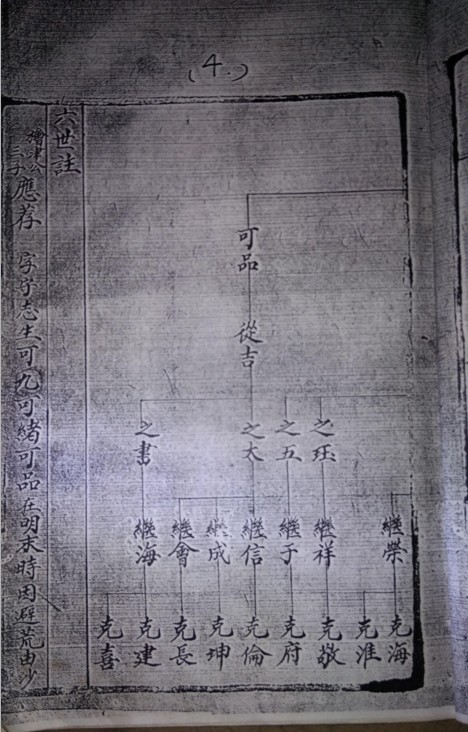 (4.)
可品 從吉
之珏 之五 之大 之書
繼榮 繼祥 繼于 繼信 繼成 繼會 繼海
克海 克淮 克敬 克府 克倫 克坤 克長 克建 克喜
六世註
三子應荐 字 志生可九可緒可品在明末時因避荒由沙